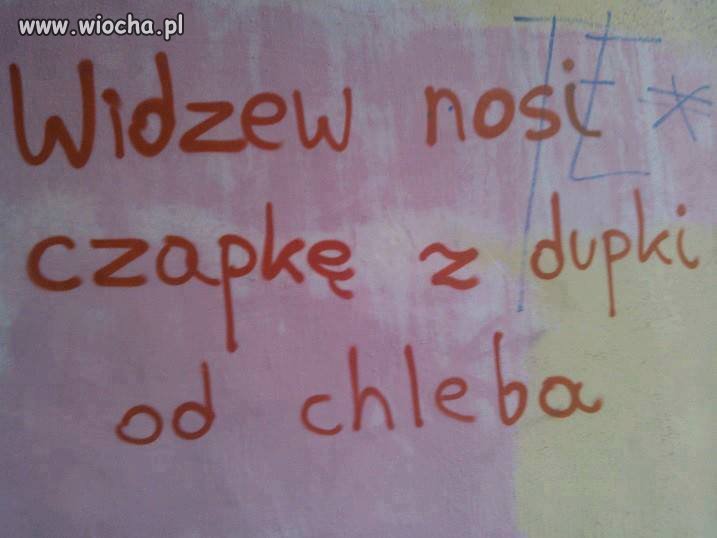 www.wiocha.pl
Widzew nosi
czapkę z dupki
od chleba